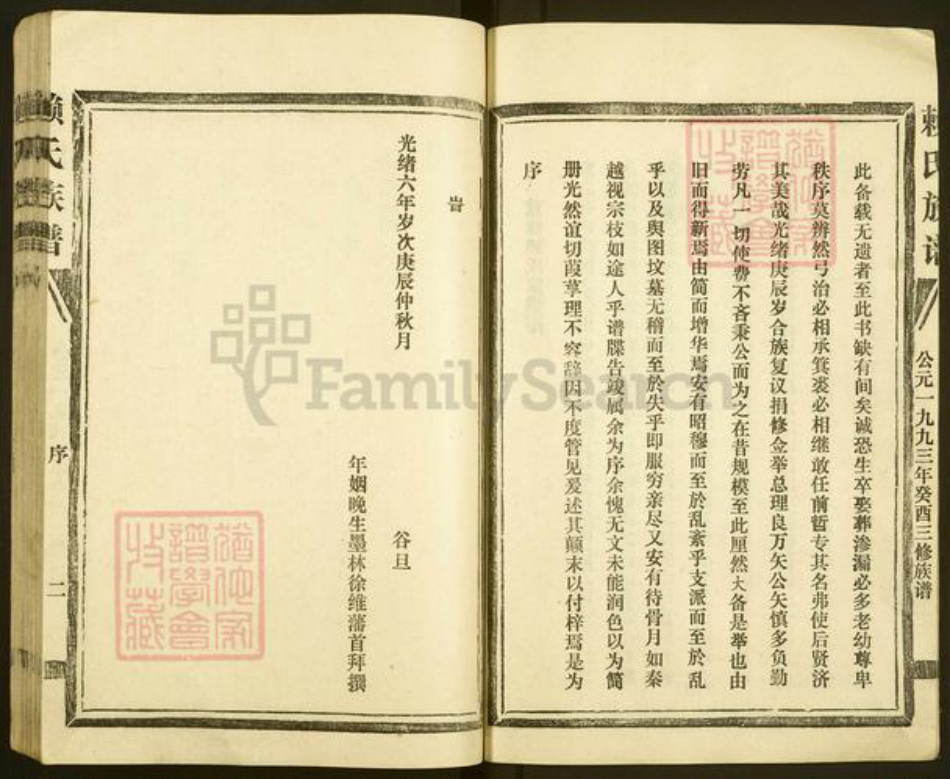 赖氏族谱
公元一九九三年癸酉三修族谱
此备载无遗者至此书缺有间矣诚恐生卒娶葬渗漏必多老幼尊卑
秩序莫辨然弓冶必相承箕裘必相继敢任前哲专其名弗使后贤济
其美哉光绪庚辰岁合族复议捐修佥举总理良万矢公矢慎多负勤
劳凡一切使费不吝秉公而为之在昔规模至此厘然大备是举也由
旧而得新焉由简而增华焉安有昭穆而至於乱紊乎支派而至於乱
乎以及舆图坟墓无稽而至於失乎即服穷亲尽又安有待骨月如秦
越视宗枝如途人乎谱牒告竣属余为序余愧无文未能润色以为简
册光然谊切葭莩理不容辞因不度管见爰述其颠末以付梓焉是为
序
旹
光绪六年岁次庚辰仲秋月
谷旦
年姻晚生墨林徐维藩首拜撰
赖氏族谱
序
二
FamilySearch